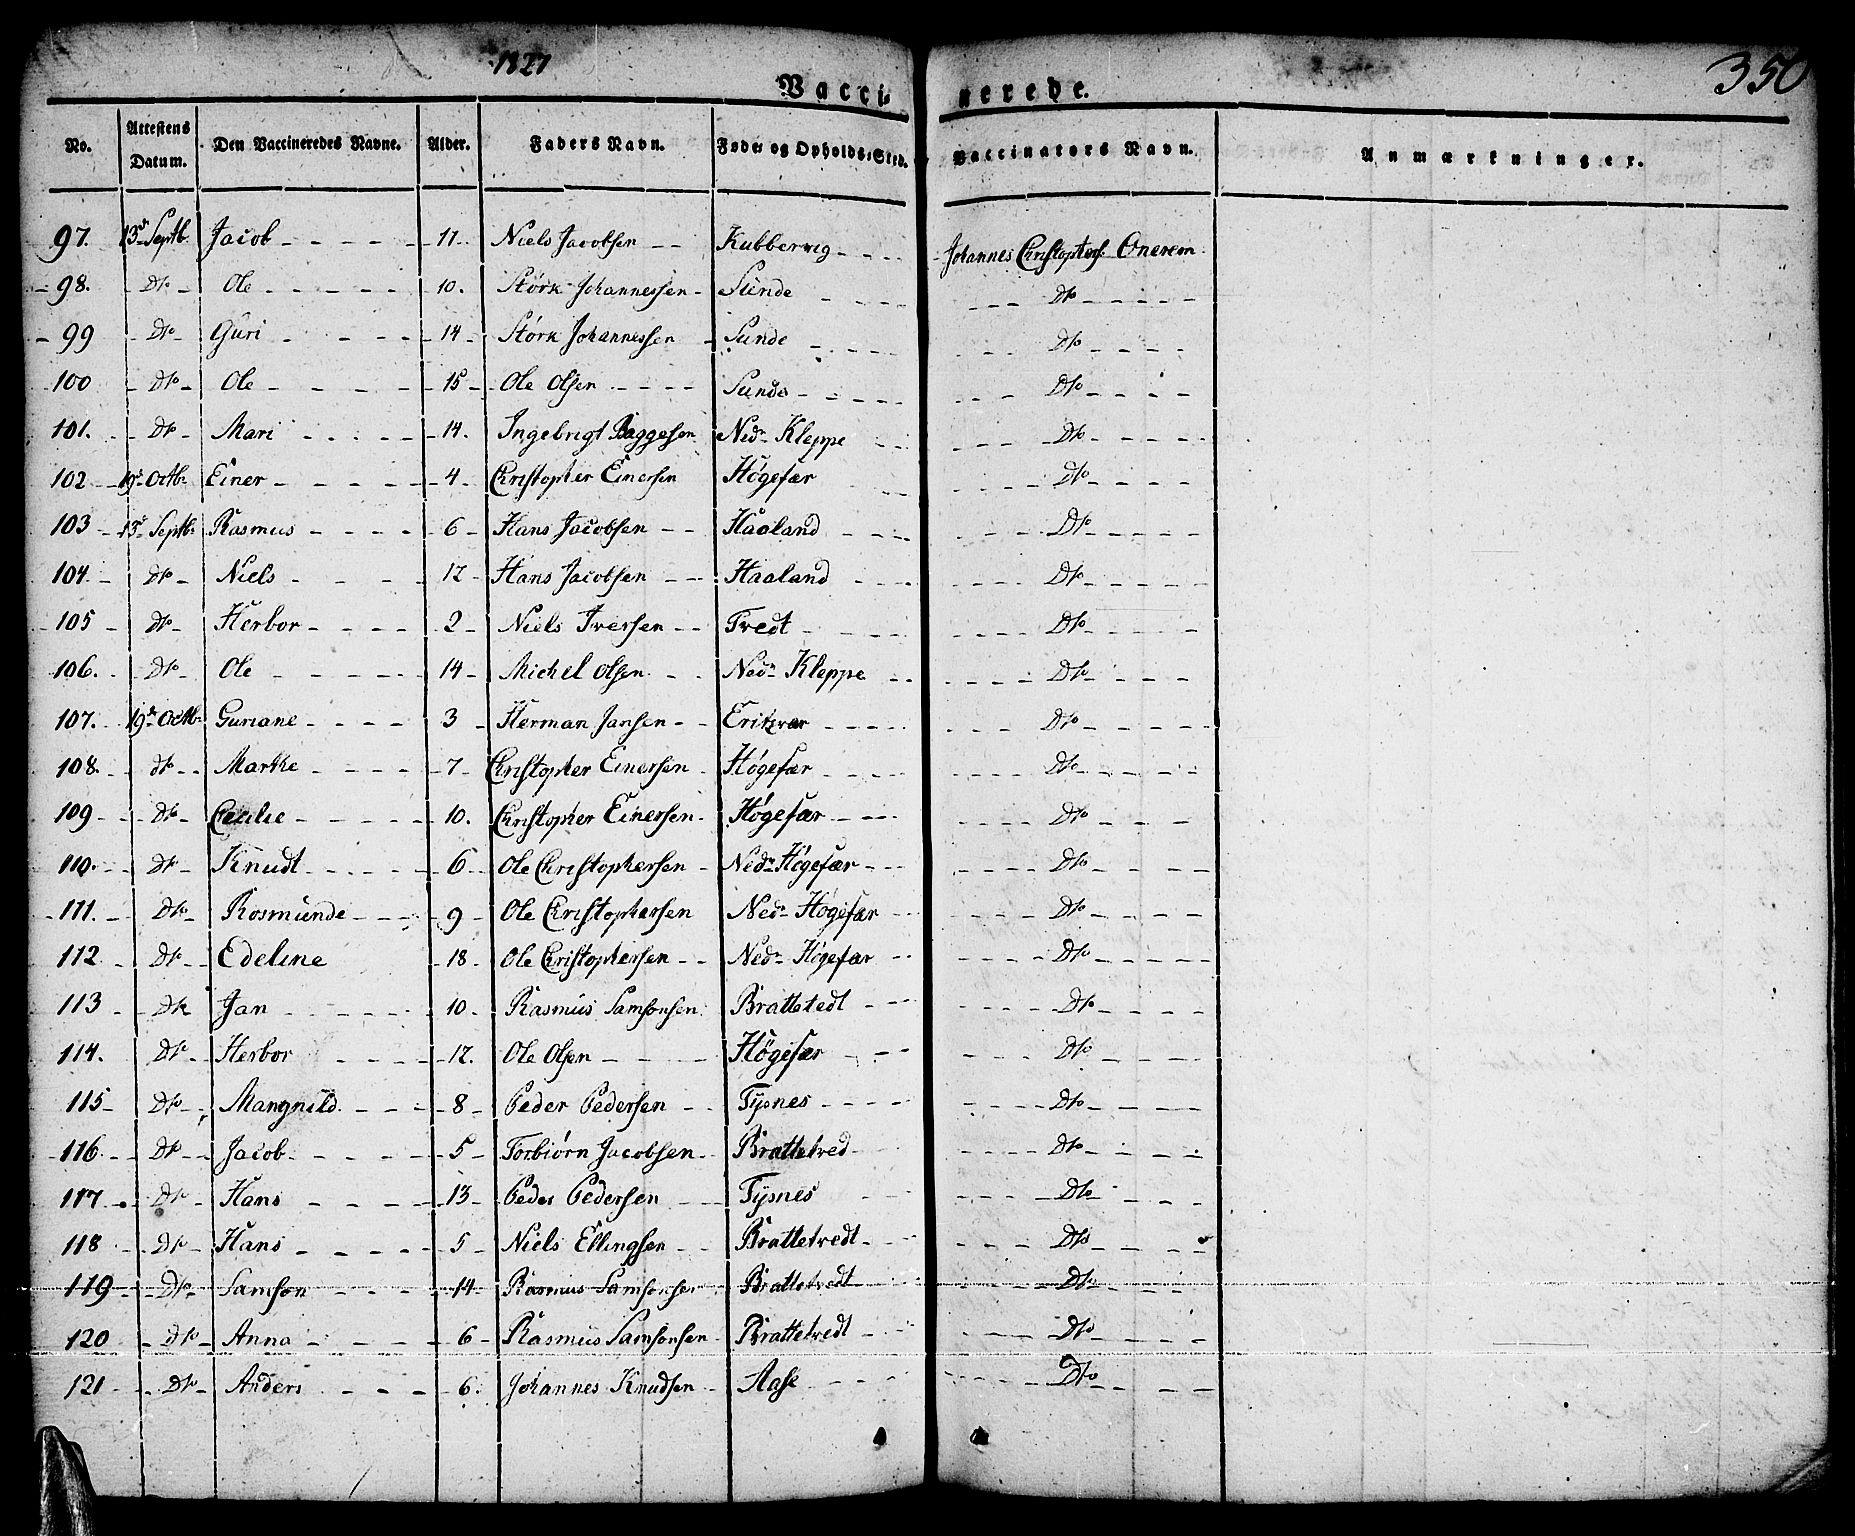 1827
350
Vaccinerede.
No. Attestens Datum. Den Vaccineredes Navne. Alder. Faders Navn. Føde- og Opholds-Sted. Vaccinators Navn. Anmærkninger.
97. 13de Septb. Jacob 11. Niels Jacobsen Kubbervig Johannes Christophers.
98. Do Ole 10. Størk Johannessen Sunde Do
99 Do Guri 14 Størk Johannessen Sunde Do
100 Do Ole 15 Ole Olsen Sunde Do
101. Do Mari 14. Ingebrigt Baggesen Nedr Kleppe Do
102 19de Octbr Einer 4 Christopher Einersen Høgefær Do
103 13de Septbr Rasmus 6 Hans Jacobsen Haaland Do
104 Do Niels 12 Hans Jacobsen Haaland Do
105 Do Herbor 2 Niels Iversen Tvedt Do
106. Do Ole 14 Michel Olsen Nedr Kleppe Do
107. 19de Octbr Guriane 3 Herman Jansen Erikvær Do
108. do Marthe 7 Christopher Einersen Høgefær Do
109 Do Cecilie 10. Christopher Einersen Høgefær Do
110. Do Knudt 6 Ole Christophersen Nedr Høgefær Do
111. Do Rosmunde 9 Ole Christophersen Nedr Høgefær Do
112 Do Edeline 18 Ole Christophersen Nedr Høgefær Do
113 Do Jan 10 Rasmus Samsonsen Brattetedt Do
114. Do Herbor 12. Ole Olsen Høgefær Do
115 Do Mangnild 8 Peder Pedersen Tysnes Do
116 Do Jacob 5 Torbiørn Jacobsen Brattetved Do
117 Do Hans 13 Peder Pedersen Tysnes Do
118 Do Hans 5 Niels Ellingsen Brattetvedt Do
119 Do Samson 14 Rasmus Samsonsen Brattetvedt Do
120 Do Anna 6 Rasmus Samsonsen Brattetvedt Do
121 Do Anders 6. Johannes Knudsen Aase Do